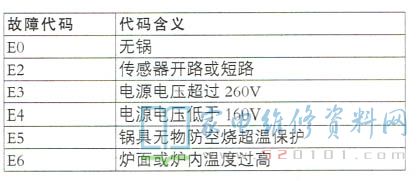 故障代码 代码含义
E0 无锅
E2 传感器开路或短路
E3 电源电压超过 260V
E4 电源电压低于 160V
E5 锅具无物防空烧超温保护
E6 炉面或炉内温度过高
家电维修资料网
520101.com